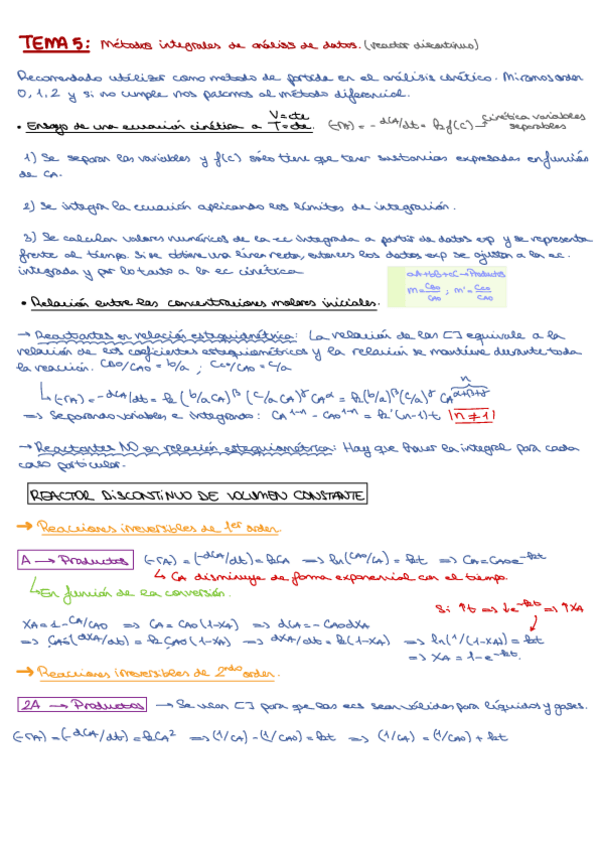 TEMA 5: Métodos integrales de análisis de datos. (reactor discontinuo)
Recomendado utilizar como metodo de partida en el análisis cinético. Miramos orden
0, 1, 2 y si no cumple nos pasamos al método diferencial.
• Ensayo de una ecuación cinética a V=cte T=cte. (-rA) = -dCA/dt = k f(C) → cinética variables separables
1) Se separan las variables y f(C) sólo tiene que tener sustancias expresadas en función
de CA.
2) Se integra la ecuación aplicando los límites de integración.
3) Se calculan valores numéricos de la ec integrada a partir de datos exp y se representa
frente al tiempo. Si se obtiene una línea recta, entonces los datos exp se ajustan a la ec.
integrada y por lo tanto a la ec cinética
aA+bB+cC → Productos
m = CBO/CAO ; m' = CCO/CAO
• Relación entre las concentraciones molares iniciales.
→ Reactantes en relación estequiométrica: La relación de las [] equivale a la
relación de los coeficientes estequiométricos y la relación se mantiene durante toda
la reacción. CBO/CAO = b/a ; CCO/CAO = c/a
n
↳ (-rA) = -dCA/dt = k (b/a CA)^β (c/a CA)^γ CA^α = k(b/a)^β(c/a)^γ CA^α+β+γ
⇒ Separando variables e integrando: CA^1-n - CAO^1-n = k'(n-1)t |n≠1|
→ Reactantes NO en relación estequiométrica: Hay que hacer la integral para cada
caso particular.
REACTOR DISCONTINUO DE VOLUMEN CONSTANTE
→ Reacciones irreversibles de 1er orden.
A → Productos (-rA) = (-dCA/dt) = kCA ⇒ ln(CAO/CA) = kt ⇒ CA = CAO e^-kt
↳ CA disminuye de forma exponencial con el tiempo.
↳ En función de la conversión.
Si ↑t ⇒ ↓e^-kt ⇒ ↑XA
XA = 1 - CA/CAO ⇒ CA = CAO(1-XA) ⇒ dCA = -CAO dXA
⇒ CAO(dXA/dt) = k CAO (1-XA) ⇒ dXA/dt = k(1-XA) ⇒ ln(1/(1-XA)) = kt
⇒ XA = 1-e^-kt.
→ Reacciones irreversibles de 2ndo orden.
2A → Productos → Se usan [] para que las ecs sean válidas para líquidos y gases.
(-rA) = (-dCA/dt) = kCA² ⇒ (1/CA) - (1/CAO) = kt ⇒ (1/CA) = (1/CAO) + kt